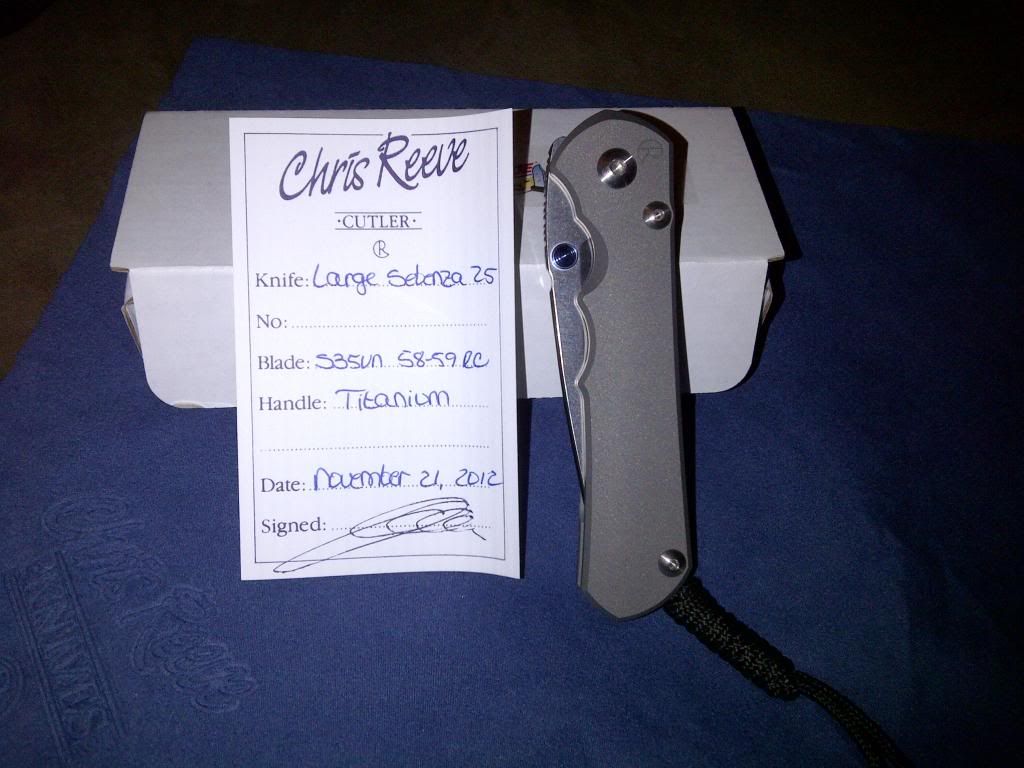 Chris Reeve
·CUTLER·
®
Knife: Large Sebenza 25
No:
Blade: S35VN 58-59 RC
Handle: Titanium
Date: November 21, 2012
Signed:
Chris Reeve
KNIVES